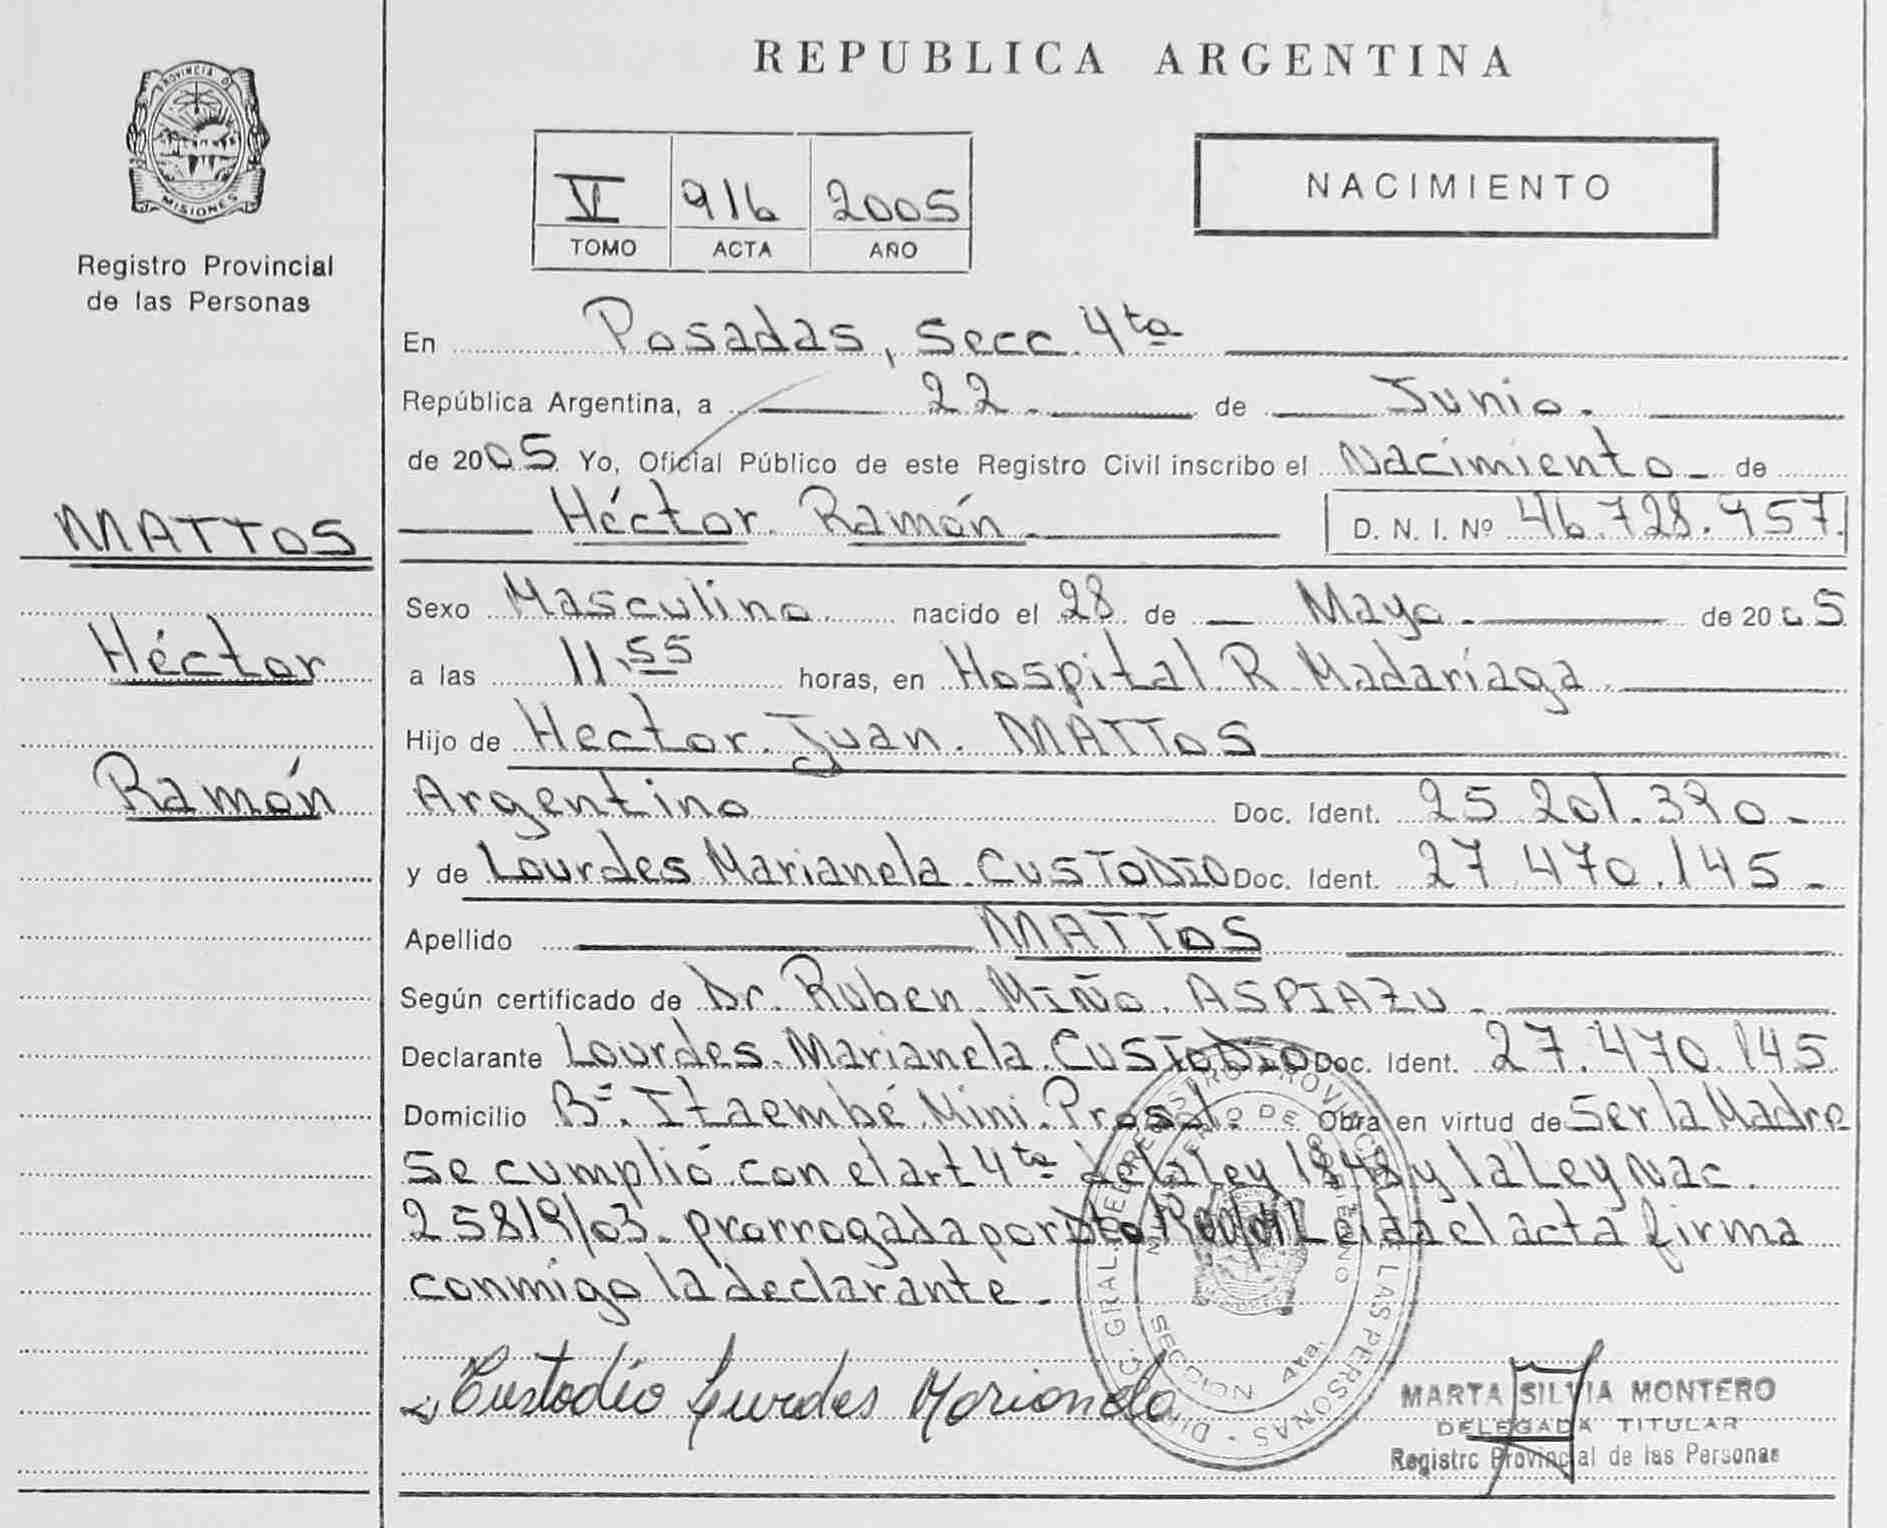 REPUBLICA ARGENTINA
PROVINCIA DE
MISIONES
Registro Provincial
de las Personas
VI 916 2005
TOMO ACTA AÑO
NACIMIENTO
En Posadas, Secc. 4ta
República Argentina, a 22 de Junio.
de 2005 Yo, Oficial Público de este Registro Civil inscribo el Nacimiento de
MATTOS
Héctor Ramón D. N. I. Nº 46.728.957.
Sexo Masculino nacido el 28 de Mayo de 2005
Héctor
a las 11,55 horas, en Hospital R Madariaga
Hijo de Hector Juan MATTOS
Ramón
Argentino Doc. Ident. 25.201.390
y de Lourdes Marianela CUSTODIO Doc. Ident. 27.470.145
Apellido MATTOS
Según certificado de Dr. Ruben Miño ASPIAZU
Declarante Lourdes Marianela CUSTODIO Doc. Ident. 27.470.145
Domicilio Bº Itaembé Mini Pros Obra en virtud de Ser la Madre
Se cumplió con el art 4ta de la ley 1848 y la Ley Nac.
25819/03 prorrogada por Dto Leida el acta firma
conmigo la declarante
Custodio Lurdes Marianela
SECCION 4ta.
MARTA SILVIA MONTERO
DELEGADA TITULAR
Registro Provincial de las Personas